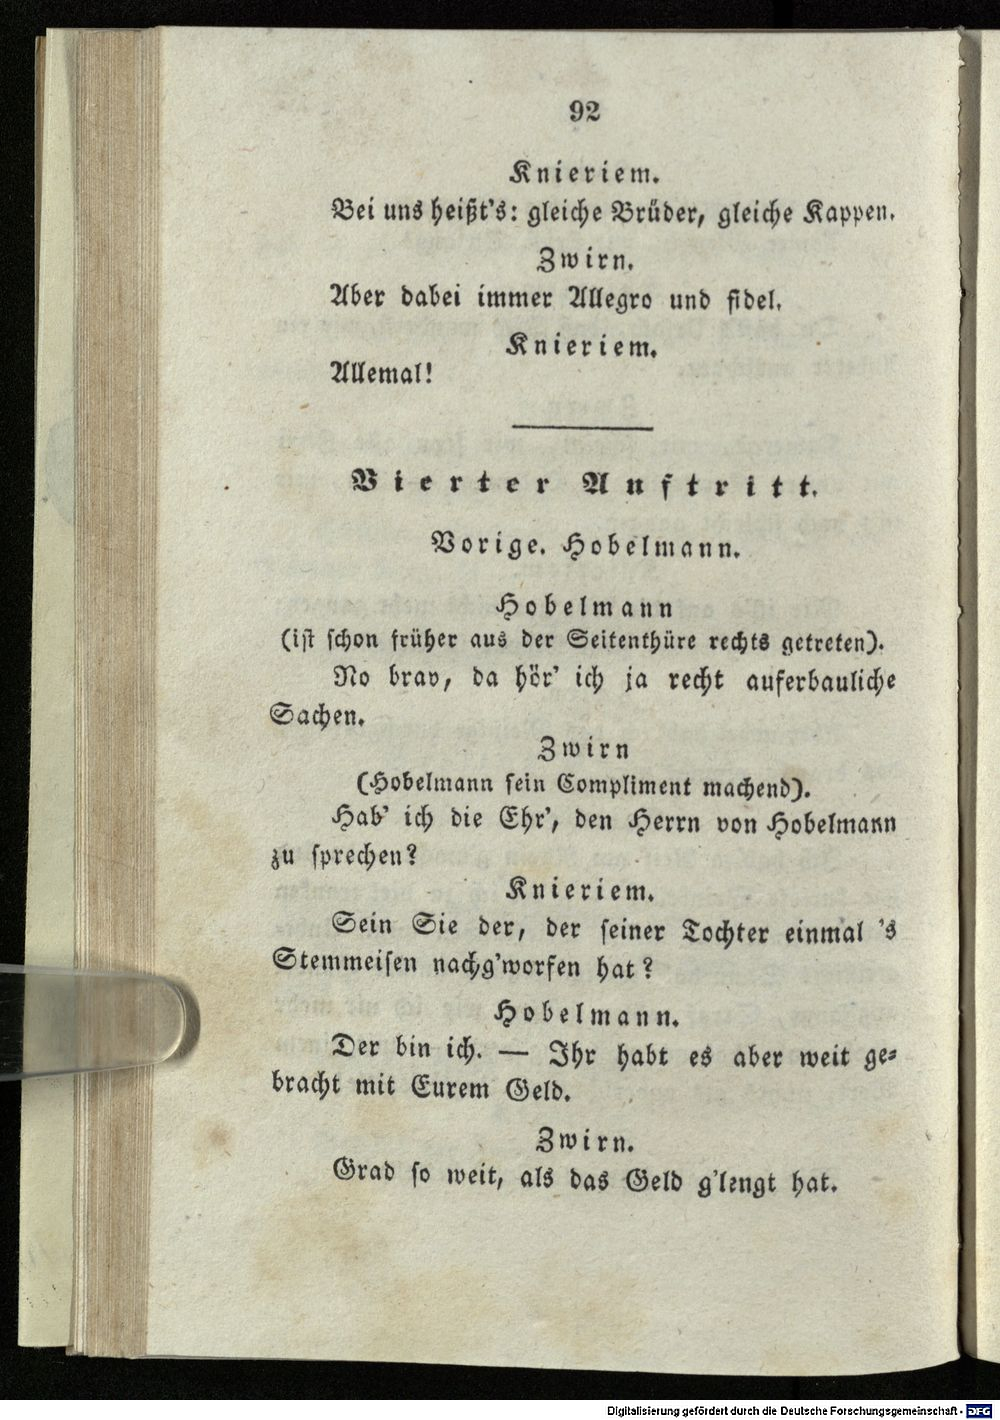 92
Knieriem.
Bei uns heißt's: gleiche Brüder, gleiche Kappen.
Zwirn.
Aber dabei immer Allegro und fidel.
Knieriem.
Allemal!
Vierter Auftritt.
Vorige. Hobelmann.
Hobelmann
(ist schon früher aus der Seitenthüre rechts getreten).
No brav, da hör' ich ja recht auferbauliche
Sachen.
Zwirn
(Hobelmann sein Compliment machend).
Hab' ich die Ehr', den Herrn von Hobelmann
zu sprechen?
Knieriem.
Sein Sie der, der seiner Tochter einmal 's
Stemmeisen nachg'worfen hat?
Hobelmann.
Der bin ich. — Ihr habt es aber weit ge-
bracht mit Eurem Geld.
Zwirn.
Grad so weit, als das Geld g'lengt hat.
Digitalisierung gefördert durch die Deutsche Forschungsgemeinschaft - DFG